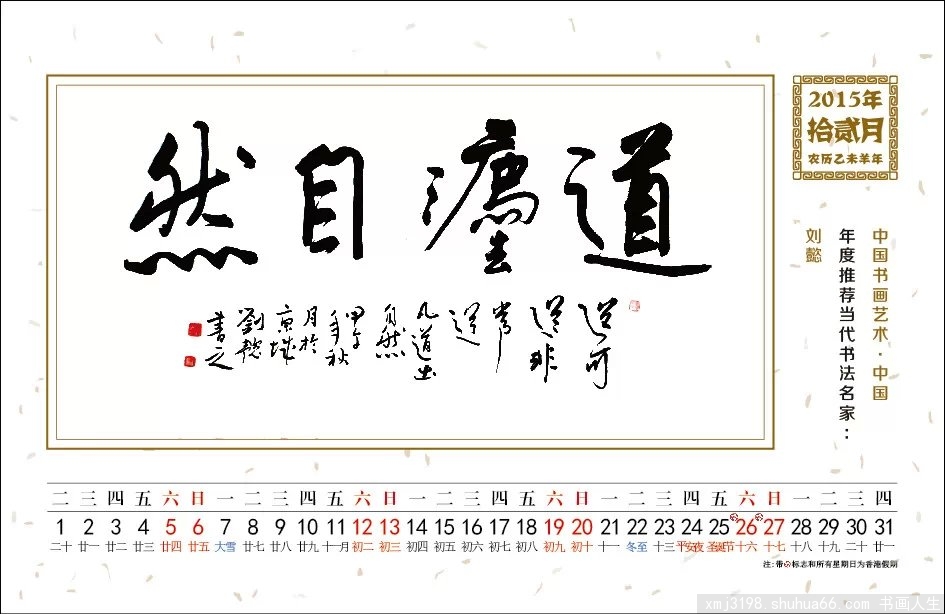 道灋自然
道可
道非
常
道
凡道出
自然
甲午
年秋
月於
京城
劉懿
書之
2015年
拾贰月
农历乙未羊年
中国书画艺术·中国
年度推荐当代书法名家：
刘懿
二 三 四 五 六 日 一 二 三 四 五 六 日 一 二 三 四 五 六 日 一 二 三 四 五 六 日 一 二 三 四
1 2 3 4 5 6 7 8 9 10 11 12 13 14 15 16 17 18 19 20 21 22 23 24 25 26 27 28 29 30 31
二十 廿一 廿二 廿三 廿四 廿五 大雪 廿七 廿八 廿九 十一月 初二 初三 初四 初五 初六 初七 初八 初九 初十 十一 冬至 十三 平安夜 圣诞节 十六 十七 十八 十九 二十 廿一
注:带标志和所有星期日为香港假期
xmj3198.shuhua66.com 书画人生